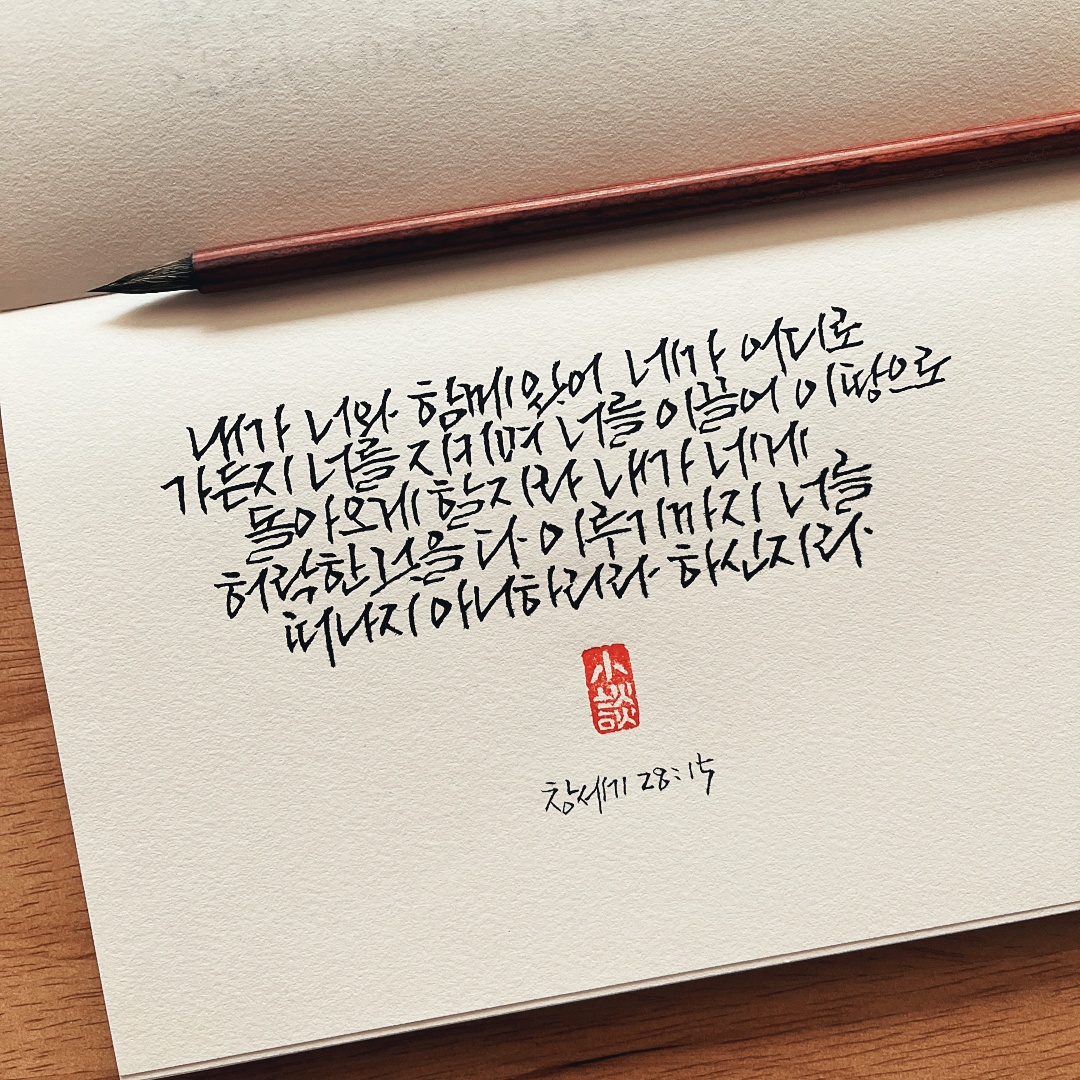 내가 너와 함께 있어 네가 어디로
가든지 너를 지키며 너를 이끌어 이 땅으로
돌아오게 할지라 내가 네게
허락한 것을 다 이루기까지 너를
떠나지 아니하리라 하신지라
小談
창세기 28:15